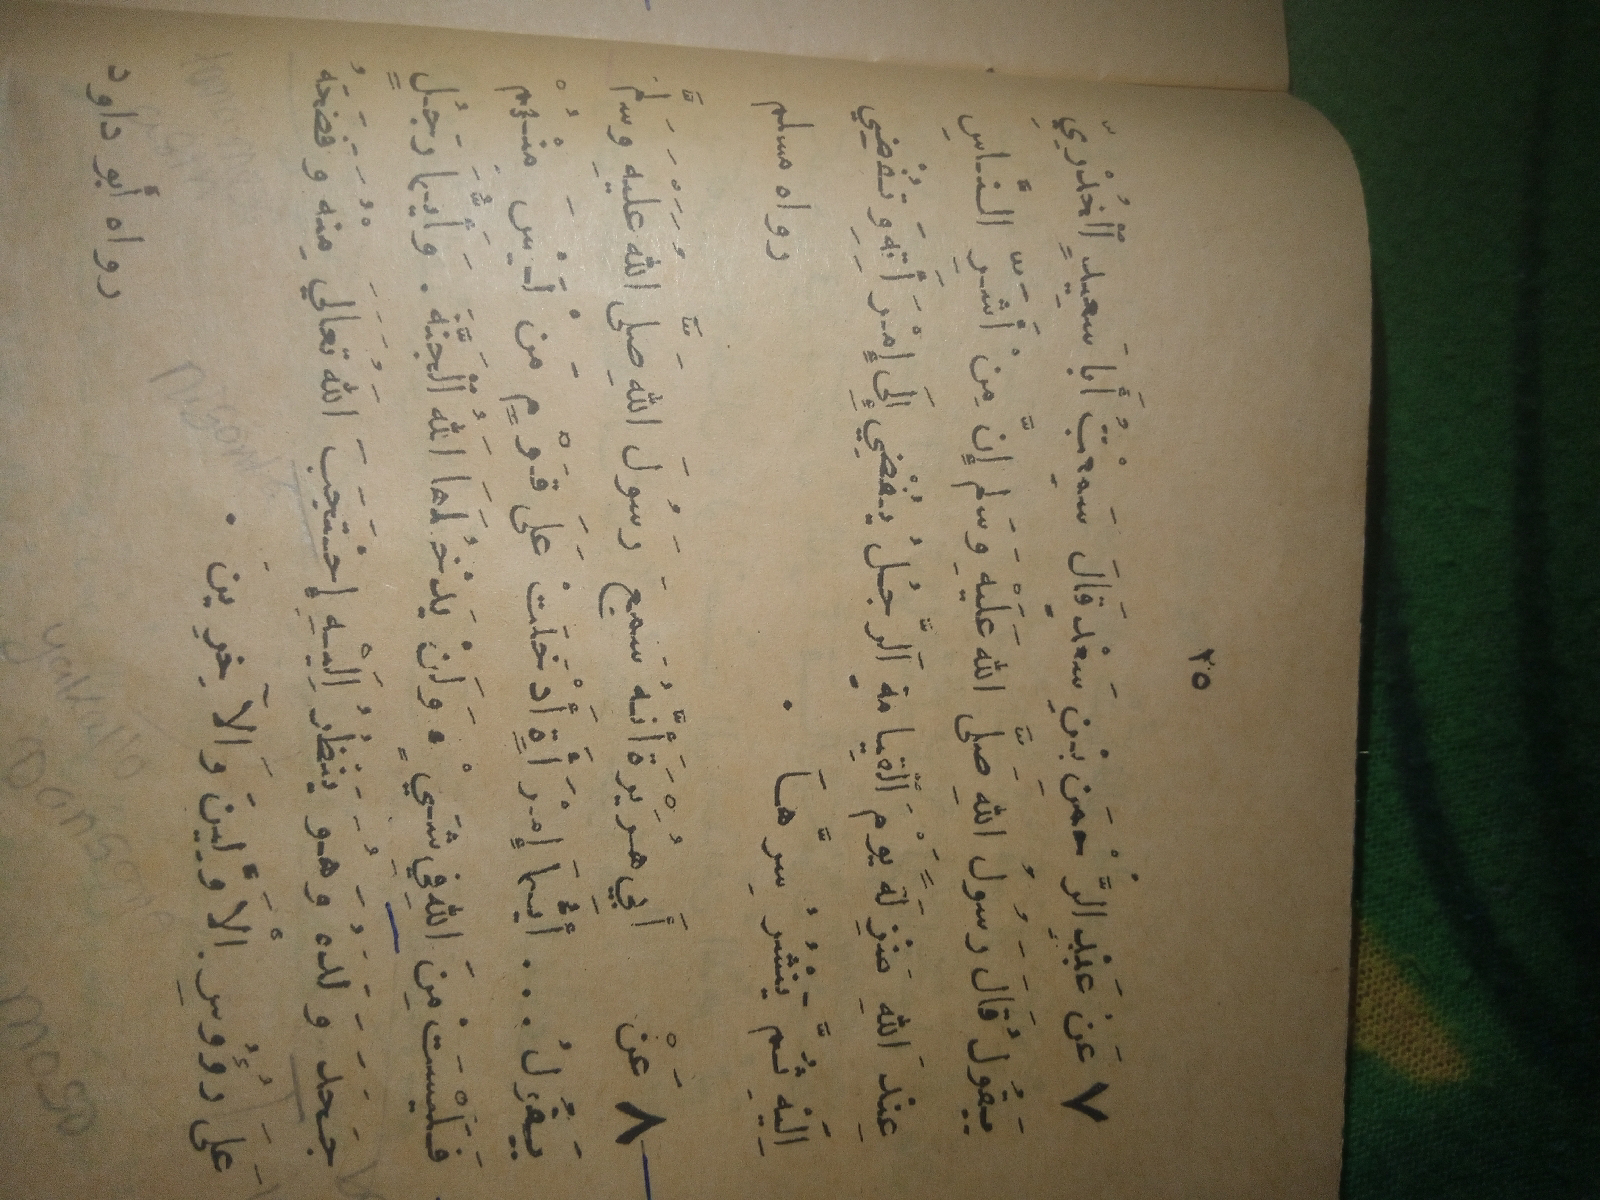 ٢٥
٧ عَنْ عَبْدِ الرَّحْمَنِ بْنِ سَعْدٍ قَالَ سَمِعْتُ أَبَا سَعِيدٍ الْخُدْرِيَّ
يَقُولُ قَالَ رَسُولُ اللهِ صَلَّى اللهُ عَلَيْهِ وَسَلَّمَ إِنَّ مِنْ أَشَرِّ النَّاسِ
عِنْدَ اللهِ مَنْزِلَةً يَوْمَ الْقِيَامَةِ الرَّجُلُ يُفْضِي إِلَى إِمْرَأَتِهِ وَتُفْضِي
إِلَيْهِ ثُمَّ يَنْشُرُ سِرَّهَا .
رواه مسلم
٨ عَنْ أَبِي هُرَيْرَةَ أَنَّهُ سَمِعَ رَسُولَ اللهِ صَلَّى اللهُ عَلَيْهِ وَسَلَّمَ
يَقُولُ ... أَيُّمَا إِمْرَأَةٍ أَدْخَلَتْ عَلَى قَوْمٍ مَنْ لَيْسَ مِنْهُمْ
فَلَيْسَتْ مِنَ اللهِ فِي شَيْءٍ وَلَنْ يَدْخُلَهَا اللهُ الْجَنَّةَ . وَأَيُّمَا رَجُلٍ
جَحَدَ وَلَدَهُ وَهُوَ يَنْظُرُ إِلَيْهِ إِحْتَجَبَ اللهُ تَعَالَى مِنْهُ وَفَضَحَهُ
عَلَى رُؤُوسِ الْأَوَّلِينَ وَالْآخِرِينَ .
رواه أبو داود